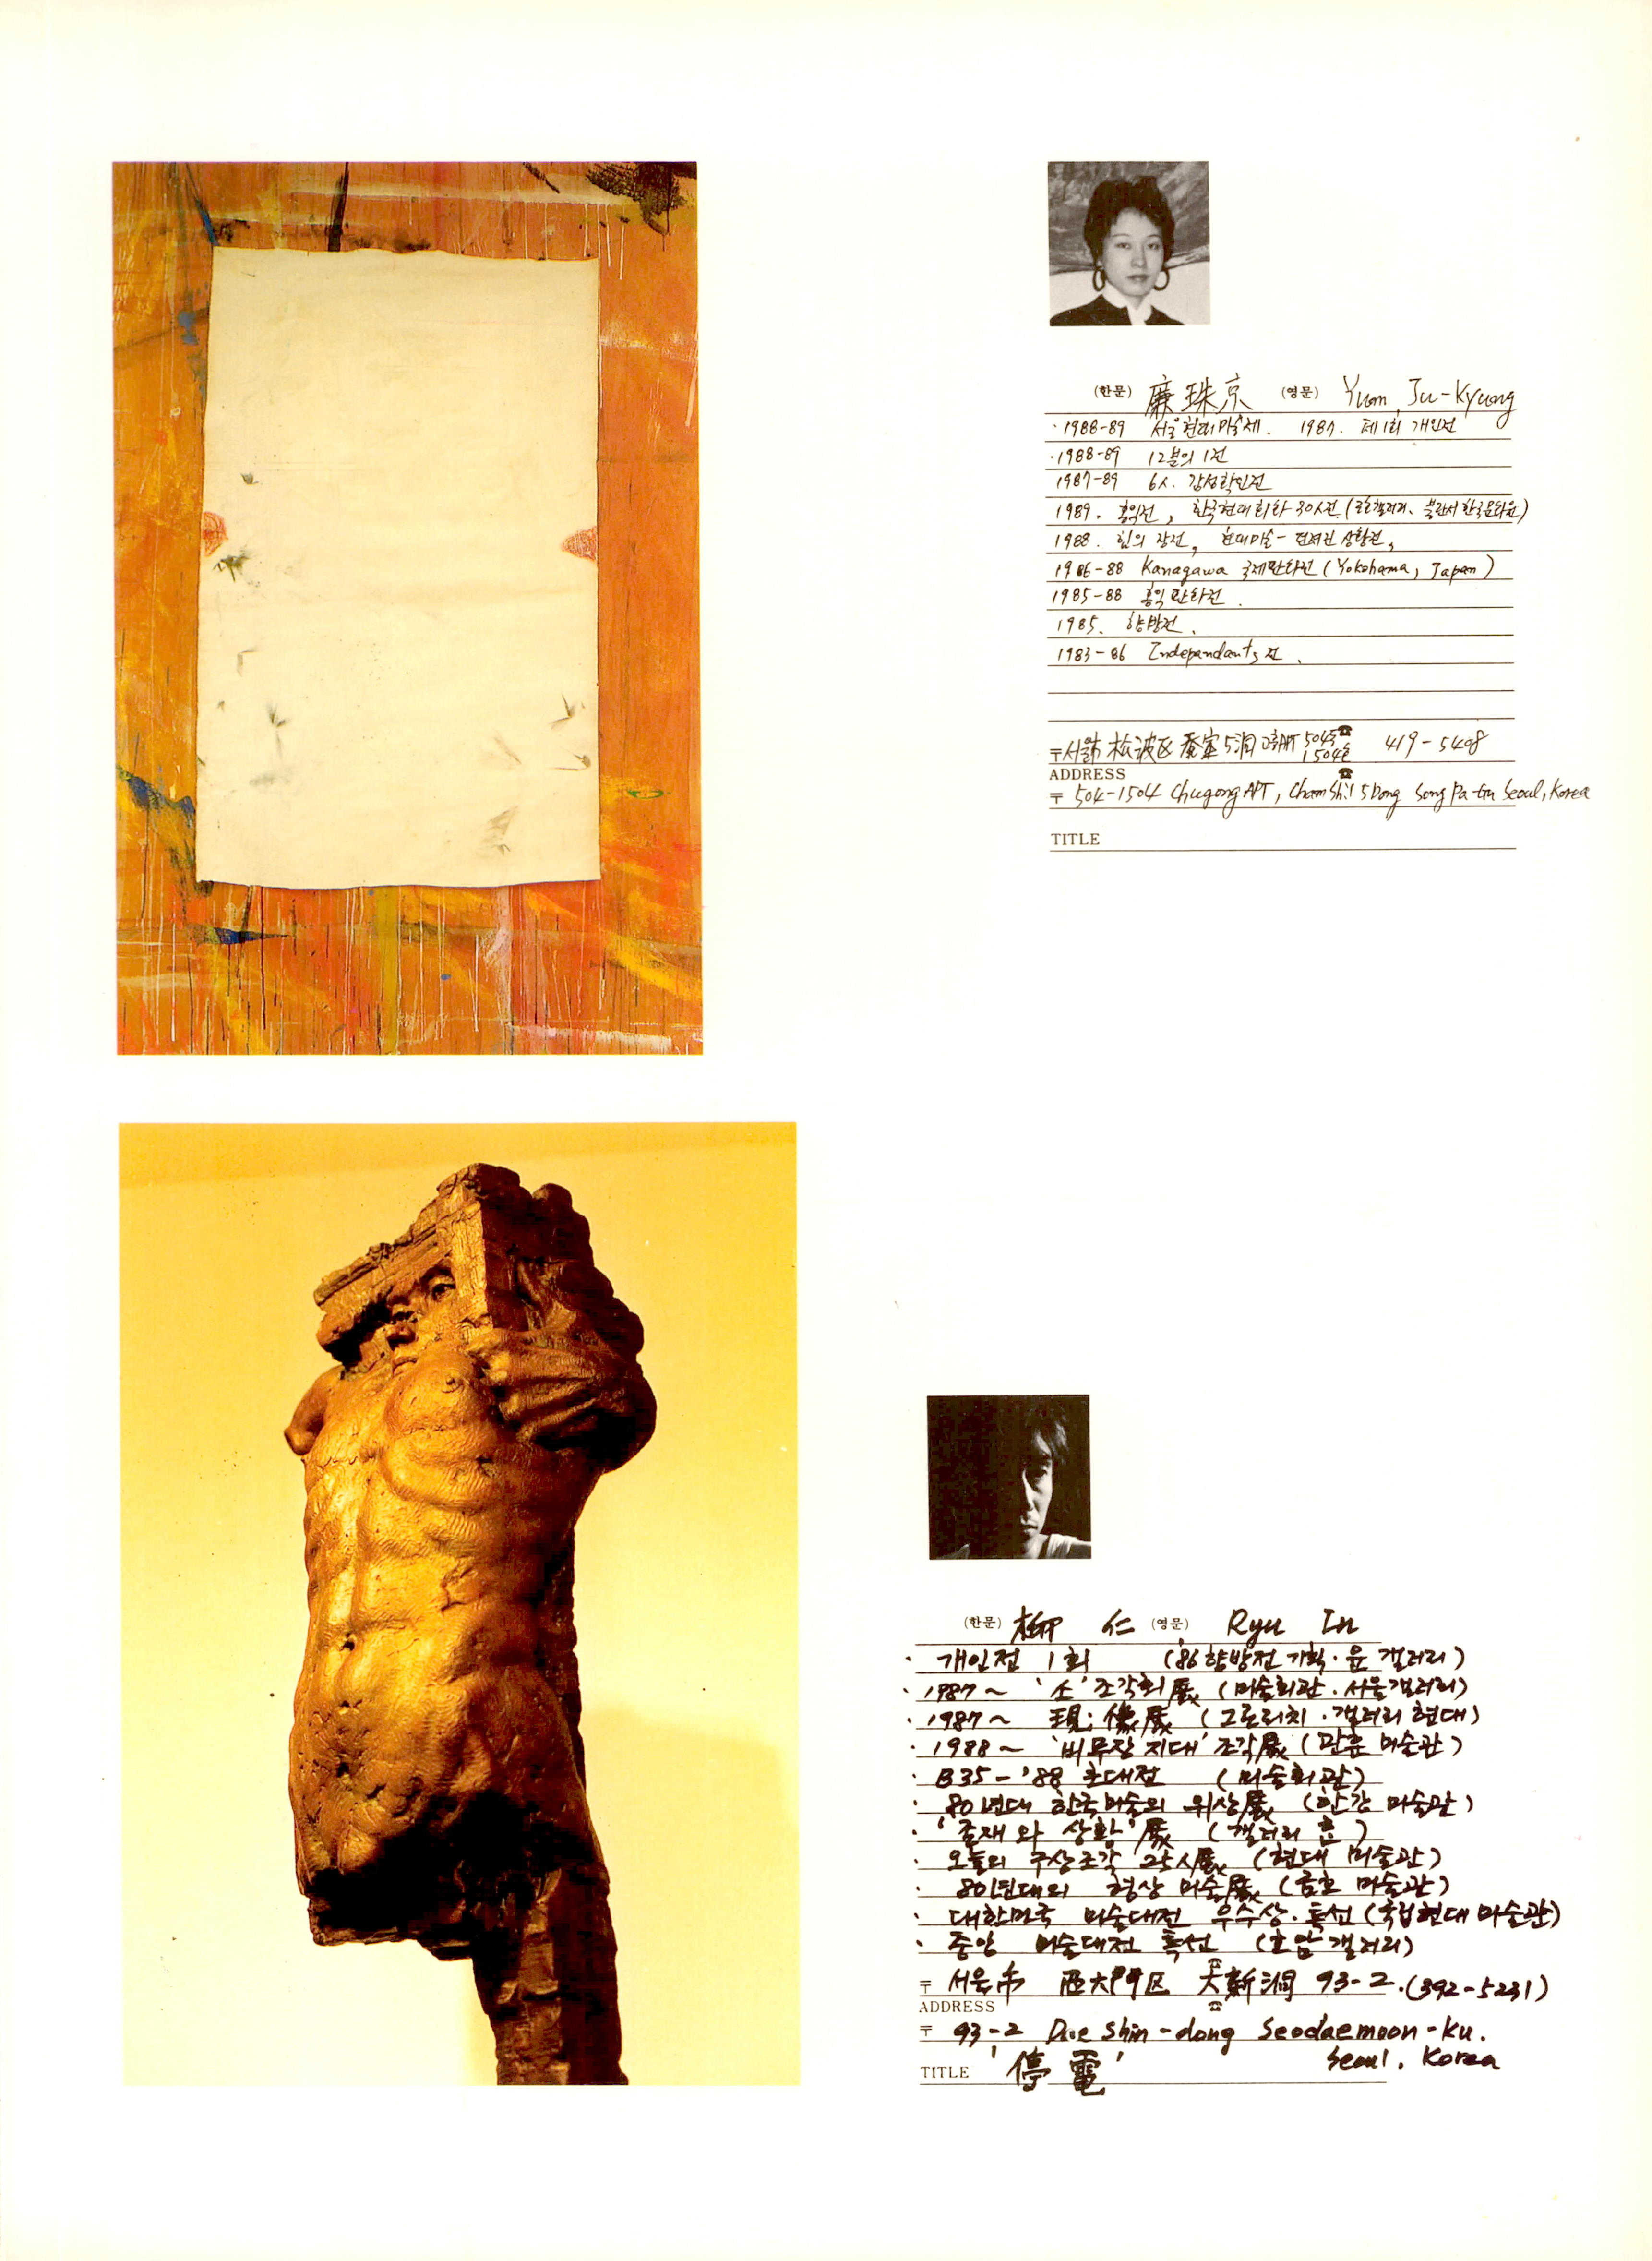 (한문) 廉珠京 (영문) Yum, Ju-Kyung
· 1988-89 서울현대미술제. 1987. 제1회 개인전
· 1988-89 12분의 1전
1987-89 6人. 감성확인전
1989. 홍익전, 한국현대회화 30人전 ( 불란서 한국문화원)
1988. 힘의 장전, 현대미술- 상황전,
1986-88 Kanagawa 국제판화전 (Yokohama, Japan)
1985-88 홍익 판화전.
1985. 향방전.
1983-86 Independants 전.
〒 서울市 松坡区 蚕室 5洞 APT 504동 1504호 ☎ 419-5408
ADDRESS ☎
〒 504-1504 Chugong APT, Chamshil 5 Dong Song Pa-Gu Seoul, Korea
TITLE
(한문) 柳 仁 (영문) Ryu In
· 개인전 1회 ('86 향방전 기획·윤 갤러리)
· 1987~ '소' 조각회展 (미술회관·서울갤러리)
· 1987~ 現·像展 (그로리치·갤러리 현대)
· 1988~ '비무장 지대' 조각展 (관훈 미술관)
· B35-'88 초대전 (미술회관)
· 80년대 한국미술의 위상展 (한강 미술관)
· '존재와 상황'展 (갤러리 )
· 오늘의 구상조각 25人展 (현대 미술관)
· 80년대의 형상 미술展 (금호 미술관)
· 대한민국 미술대전 우수상·특선 (국립현대 미술관)
· 중앙 미술대전 특선 (호암 갤러리)
〒 서울市 西大門区 大新洞 93-2. ☎ (392-5231)
ADDRESS ☎
〒 93-2 Dae Shin-dong Seodaemoon-Ku.
Seoul, Korea
TITLE '停電'